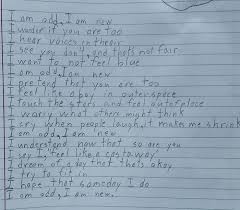 I am odd, I am new
I wonder if you are too
I hear voices in the air
I see you don't, and that's not fair
I want to not feel blue
I am odd, I am new
I pretend that you are too
I feel like a boy in outerspace
I touch the stars and feel out of place
I worry what others might think
I cry when people laugh, it makes me shrink
I am odd, I am new
I understand now that so are you
I say I, "feel like a castaway"
I dream of a day that that's okay
I try to fit in
I hope that someday I do
I am odd, I am new.